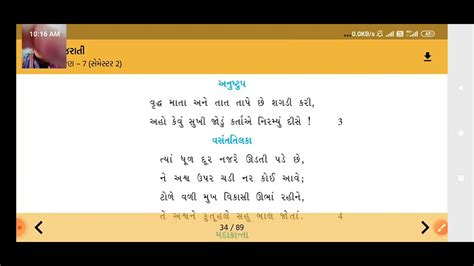 10:16 AM
0.0KB/s
જરાતી
રણ – 7 (સેમેસ્ટર 2)
અનુષ્ટુપ
વૃદ્ધ માતા અને તાત તાપે છે શગડી કરી,
અહો કેવું સુખી જોડું કર્તાએ નિરમ્યું દીસે ! 3
વસંતતિલકા
ત્યાં ધૂળ દૂર નજરે ઊડતી પડે છે,
ને અશ્વ ઉપર ચડી નર કોઈ આવે;
ટોળે વળી મુખ વિકાસી ઊભાં રહીને,
તે અશ્વને કુતૂહલે સહુ બાલ જોતાં. 4
34 / 89